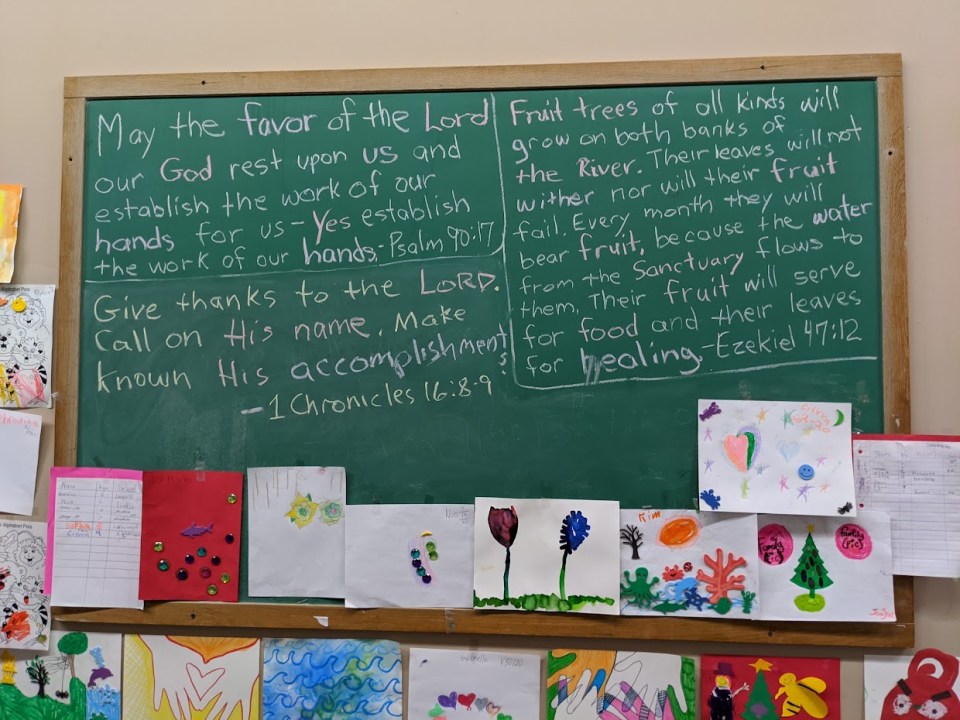 May the favor of the Lord
our God rest upon us and
establish the work of our
hands for us - Yes establish
the work of our hands. - Psalm 90:17
Give thanks to the LORD.
Call on His name. Make
known His accomplishment
s
- 1 Chronicles 16:8-9
Fruit trees of all kinds will
grow on both banks of
the River. Their leaves will not
wither nor will their fruit
fail. Every month they will
bear fruit, because the water
from the Sanctuary flows to
them. Their fruit will serve
for food and their leaves
for healing. - Ezekiel 47:12
Name
Kim